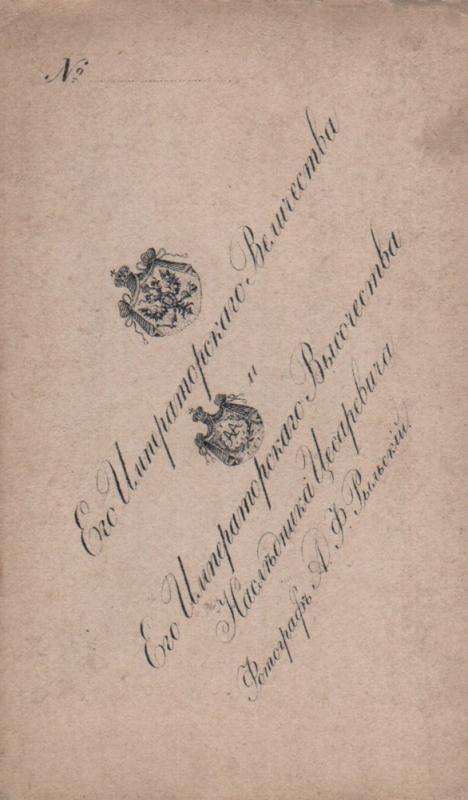 №
Его Императорскаго Величества
и
Его Императорскаго Высочества
Наслѣдника Цесаревича
Фотографъ А. Ф. Рыльскій